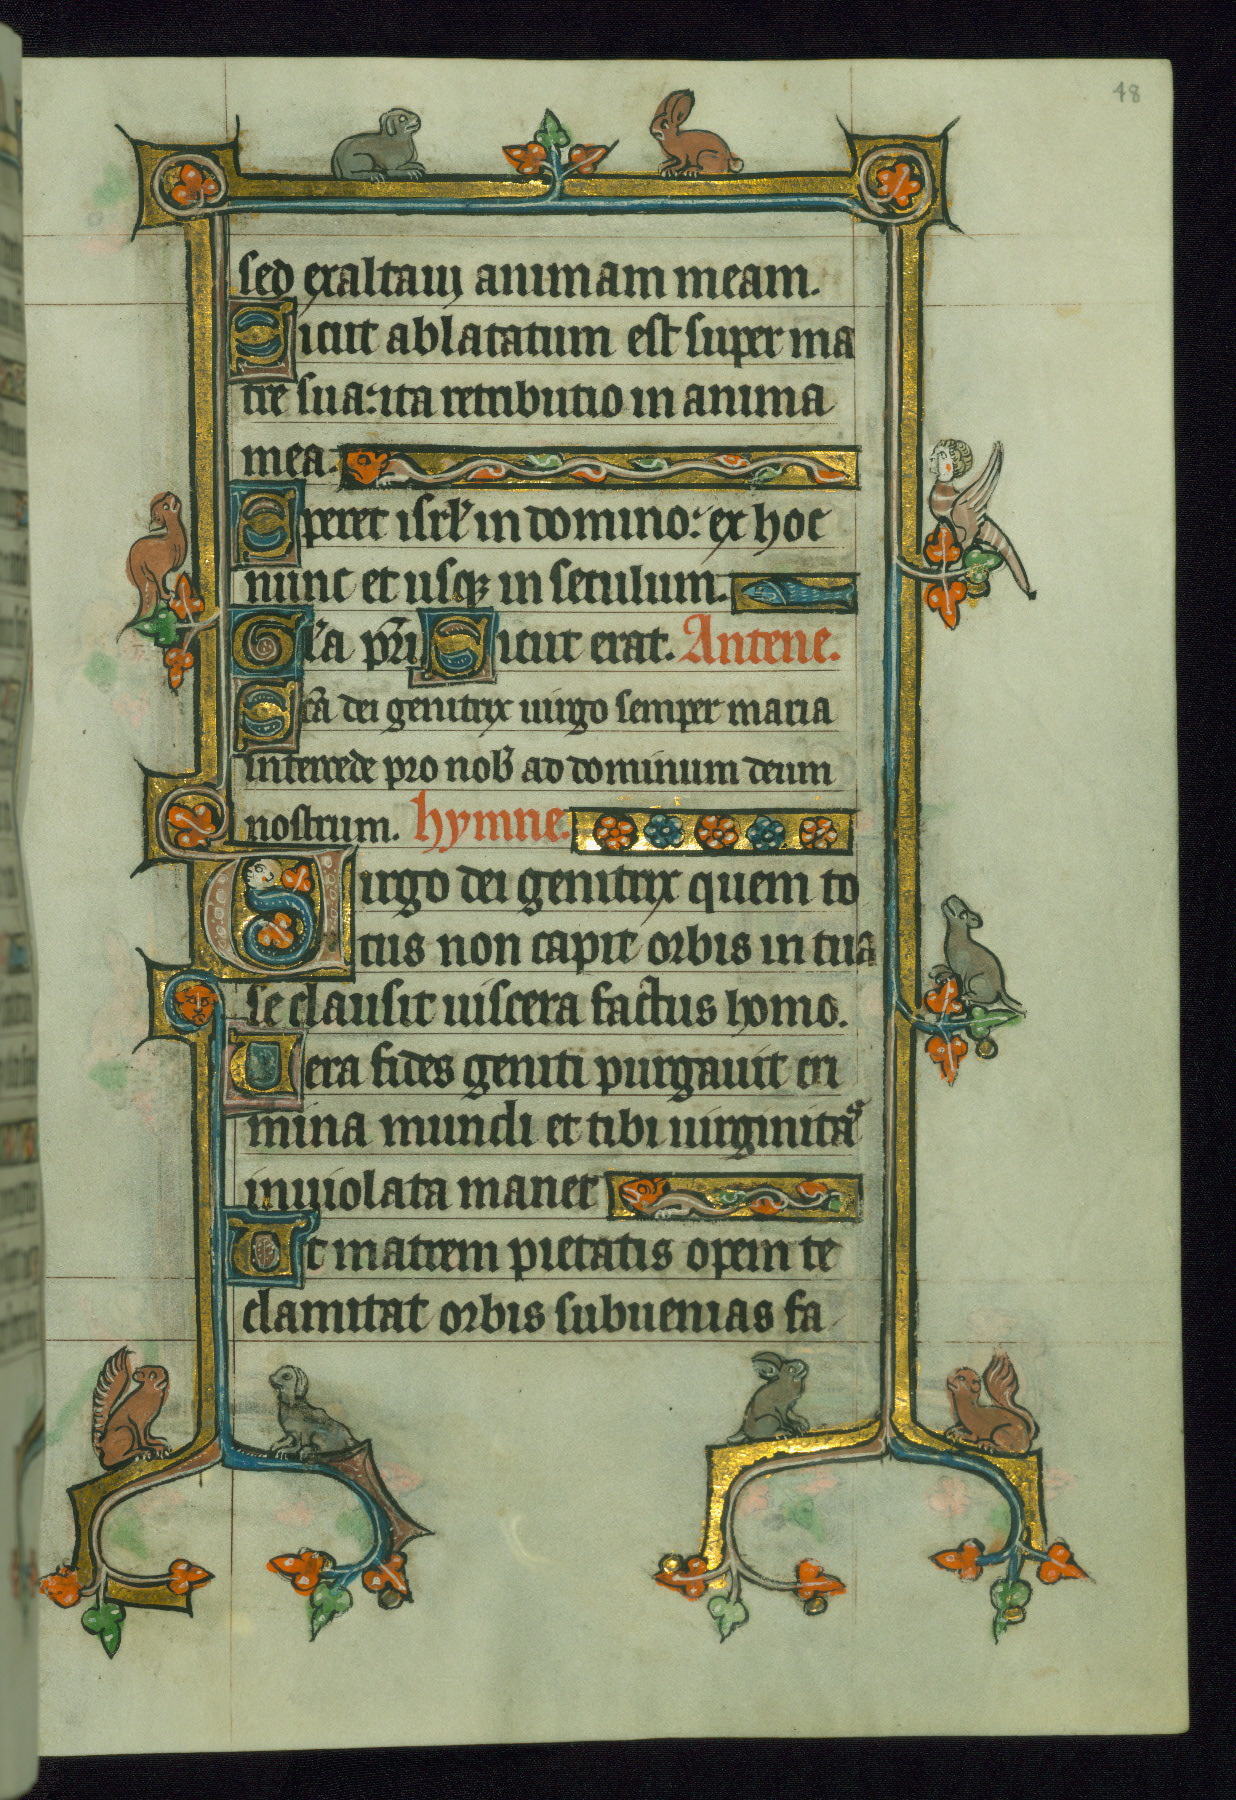 48
sed exaltaui animam meam.
Sicut ablatatum est super ma
tre sua: ita retributio in anima
mea.
Speret isrl' in domino: ex hoc
nunc et usq; in seculum.
Gl'a p̄ri Sicut erat. Antene.
Sc̄a dei genitrix uirgo semper maria
intercede pro nob' ad dominum deum
nostrum. hymne.
Uirgo dei genitrix quem to
tus non capit orbis in tua
se clausit uiscera factus homo.
Uera fides geniti purgauit cri
mina mundi et tibi uirginitas
inuiolata manet
Ut matrem pietatis opem te
clamitat orbis subuenias fa